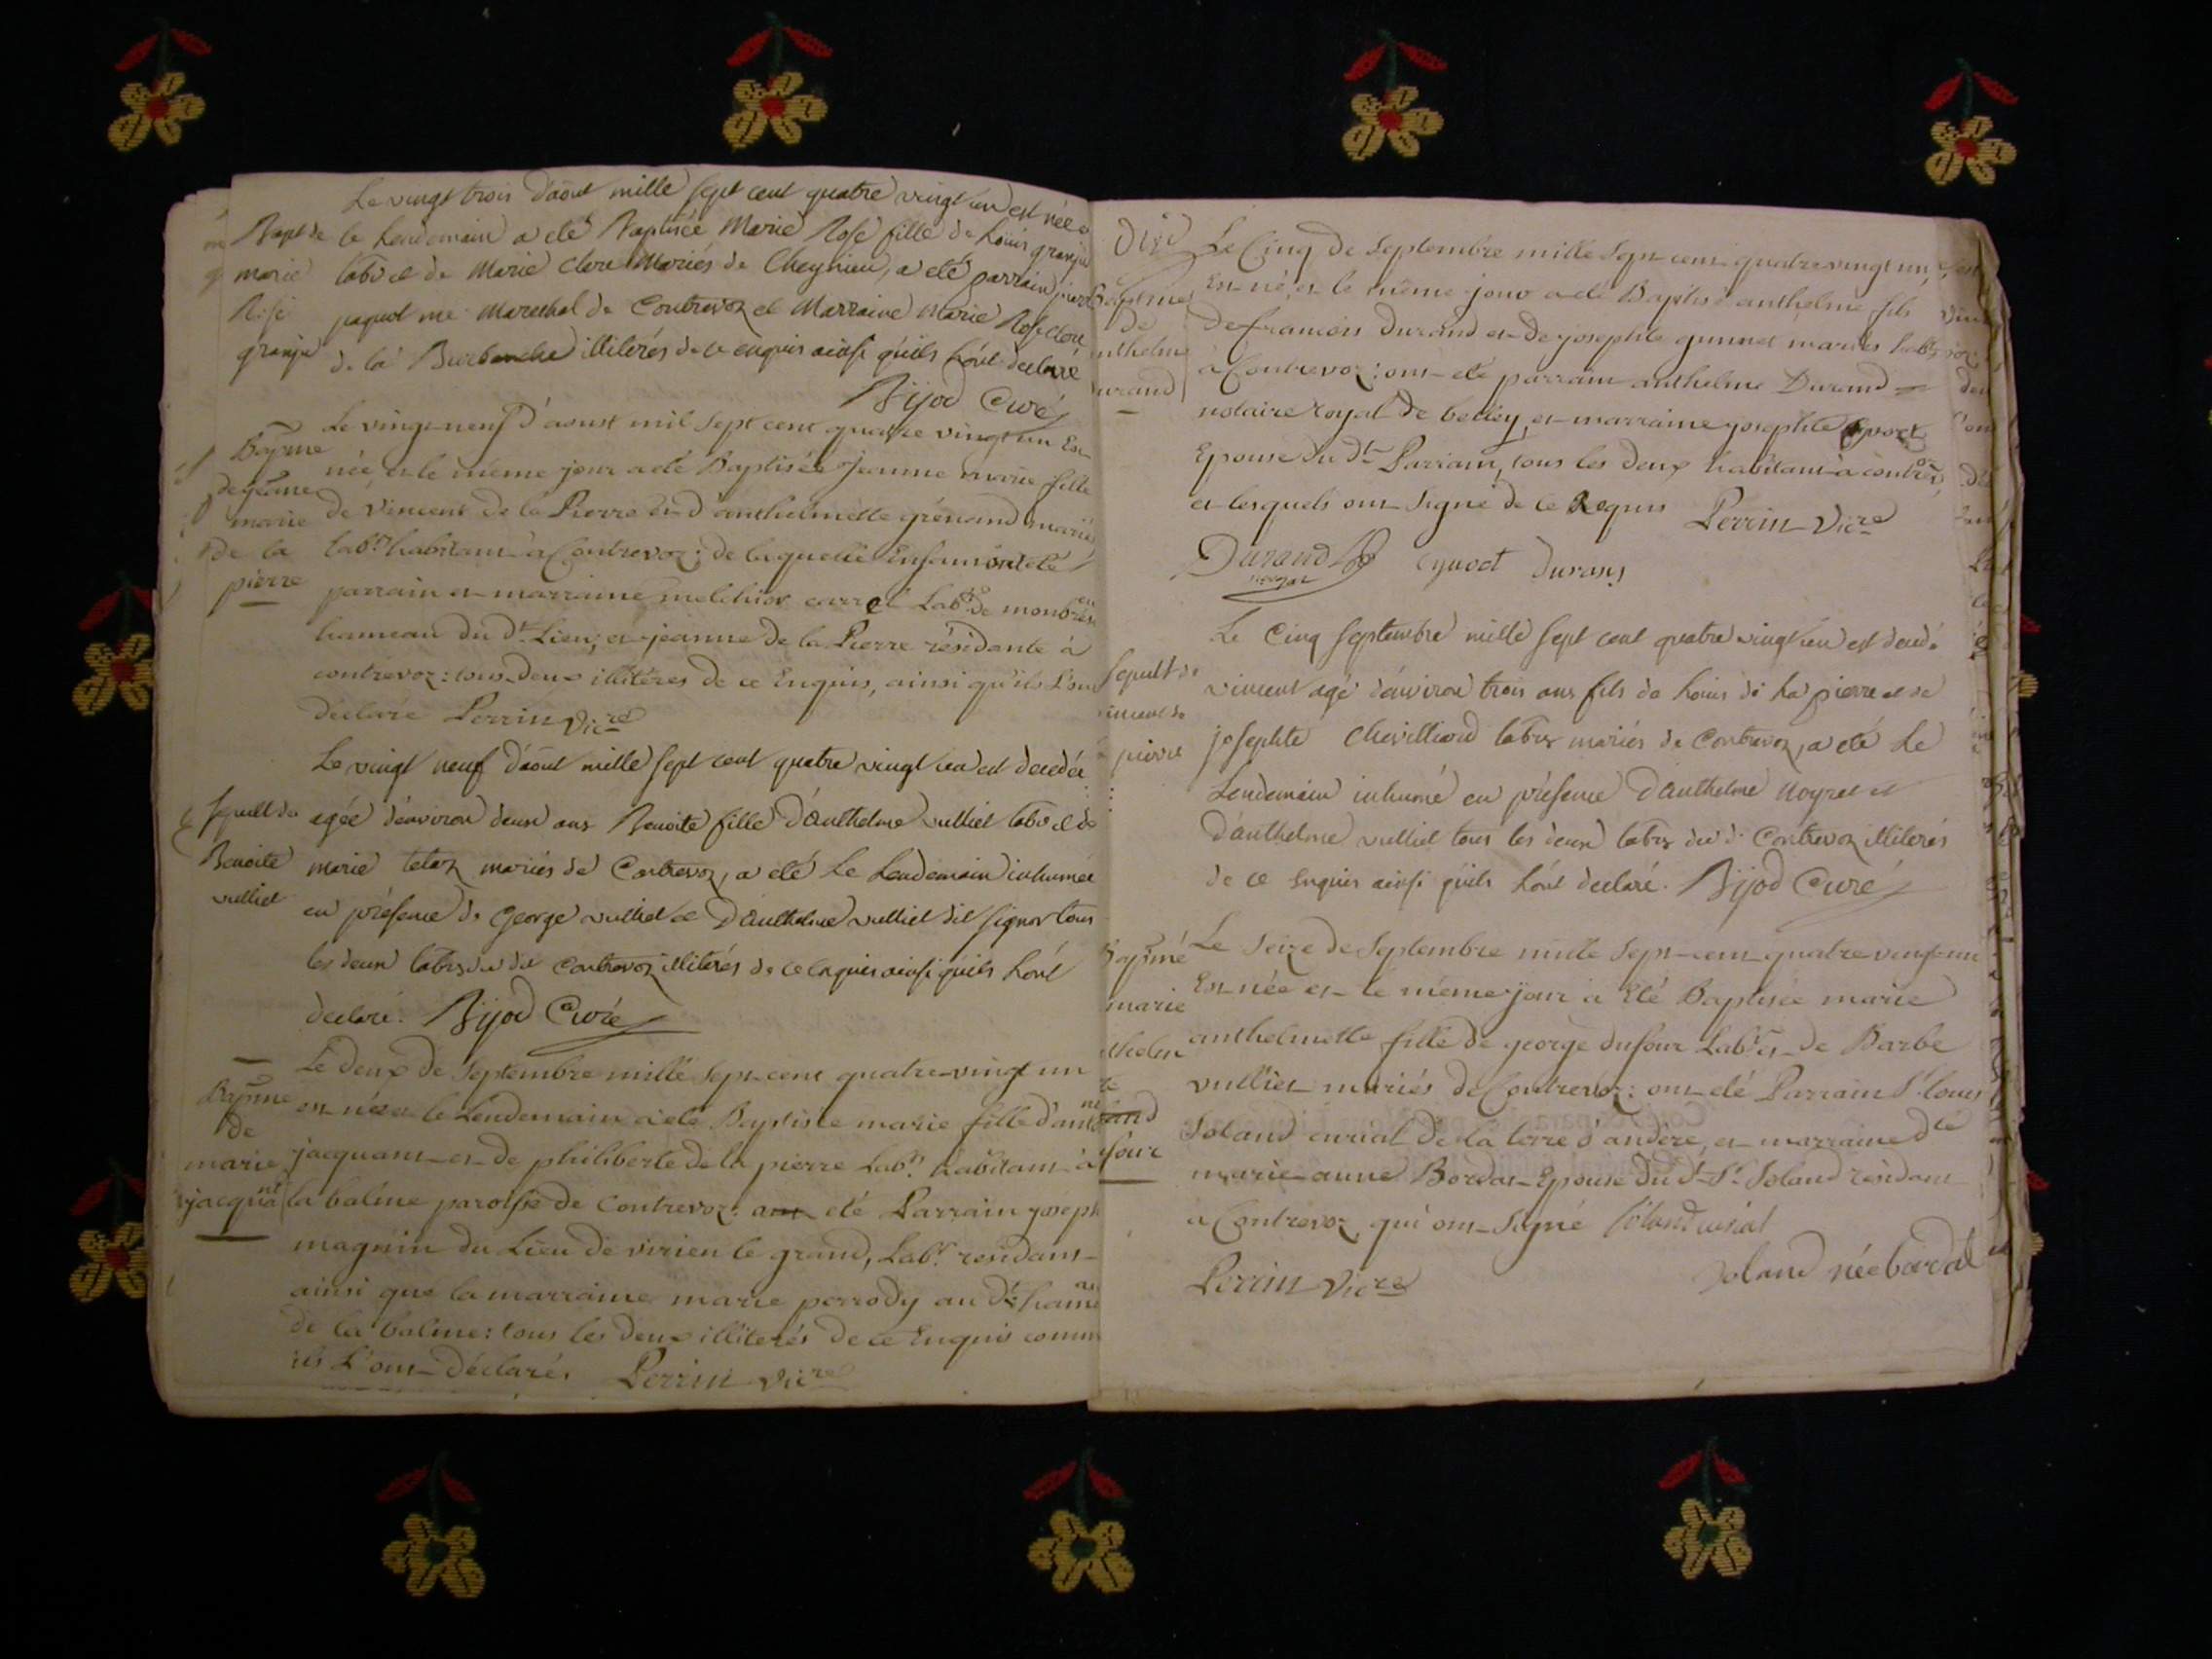 Le vingt trois d'aout mille sept cent quatre vingt un est née
Bapt de le lendemain a eté Baptisée Marie Rose fille de Louis granju
marie labr et de Marie Clere Mariés de Cheynieu, a eté parrain
Rose paquot me Marechal de Contrevoz et Marraine Marie Rose Clere
granju de la Burbanche illiterés de ce enquis ainsi qu'ils l'ont declaré
Bijod Curé
Le vingt neuf d'aoust mil sept cent quatre vingt un Est
Bapme née, et le même jour a eté Baptisée Jeanne marie fille
de jeanne marie de Vincent de la Pierre et d'anthelmette grénand mariés
de la labrs habitant à Contrevoz; de laquelle Enfant ont eté
pierre parrain et marraine melchior carrel Labr de
hameau du dt Lieu; et jeanne de la Pierre résidante à
contrevoz: tous deux illitérés de ce Enquis, ainsi qu'ils l'ont
déclaré Perrin Vicre
Le vingt neuf d'aout mille sept cent quatre vingt un est decedée
Sepult de agée d'environ deux ans Benoite fille d'Anthelme vulliet labr et de
Benoite marie tetaz mariés de Contrevoz, a eté Le Lendemain inhumée
vulliet en présence de George vulliet et D'Anthelme vulliet dit signor tous
les deux labrs du dit Contrevoz illiterés de ce enquis ainsi qu'ils l'ont
declaré. Bijod Curé
Le deux de Septembre mille Sept cent quatre vingt un
Bapme est née et le Lendemain a eté Baptisée marie fille d'
de
marie jacquant et de philiberte de la pierre Labrs habitant à
jacquant la balme paroisse de Contrevoz: eté Parrain joseph
magnin du Lieu de virieu le grand, Labr residant
ainsi que la marraine marie perrody au dt
de la balme: tous les deux illiterés de ce Enquis comme
ils L'ont Déclarés Perrin Vicre
Dixe
Le Cinq de Septembre mille Sept cent quatre vingt un,
Baptme Est né, et le même jour a eté Baptisé anthelme fils
de de francois Durand et de josephte gunnet mariés
nthelme à Contrevoz: ont eté parrain anthelme Durand
urand notaire royal de belley, et marraine josephte
Epouse du dt Parrain, tous les deux habitant à contrevoz
et lesquels ont Signé de ce Requis Perrin Vicre
Durand Cyvoct Durand
Le Cinq Septembre mille sept cent quatre vingt un est decedé
Sepult de vincent agé d'environ trois ans fils de Louis de La pierre et de
incent de josephte Chevilliard labrs mariés de Contrevoz, a eté Le
pierre Lendemain inhumé en présence d'Anthelme Noyret et
D'anthelme vulliet tous les deux labrs du dt Contrevoz illiterés
de ce Enquis ainsi qu'ils l'ont declaré. Bijod Curé
Le Seize de Septembre mille Sept cent quatre vingt un
Bapme Est née et le même jour a Eté Baptisée marie
marie anthelmette fille de george dufour Labr et de Barbe
vulliet mariés de Contrevoz: ont eté Parrain Sr Louis
Soland curial de la terre d'andére, et marraine dle
four marie-anne Bordat Epouse du dt Sr Soland residant
à Contrevoz qui ont Signé Soland curial
Perrin Vicre Soland née bordat